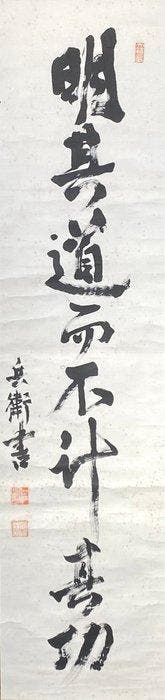 明其道而不計其功
兵衛書